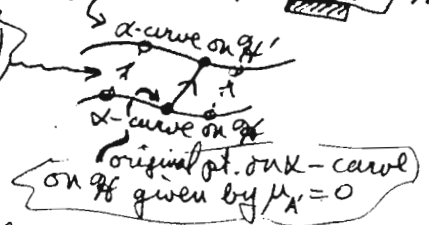 α-curve on ℋ'
α-curve on ℋ
original pt. on α-curve
on ℋ given by μ_A' = 0